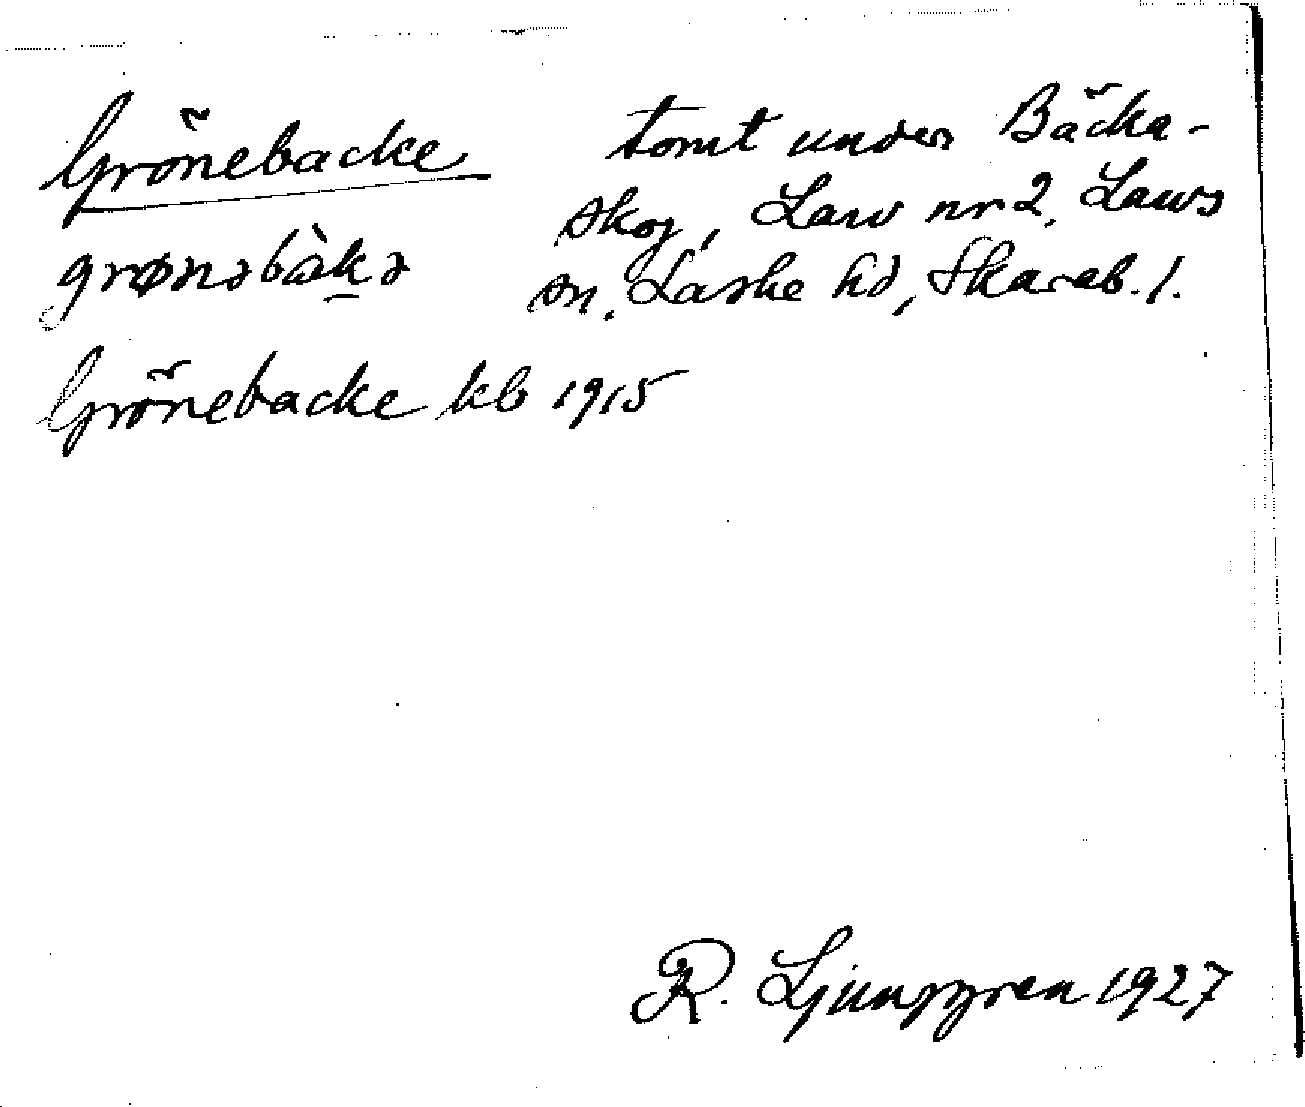 Grönebacke tomt under Bäcka-
skog, Larv nr 2, Larvs
grønəbàkə sn. Laske hd, Skarab. l.
Grönebacke kb 1915
R. Ljunggren 1927